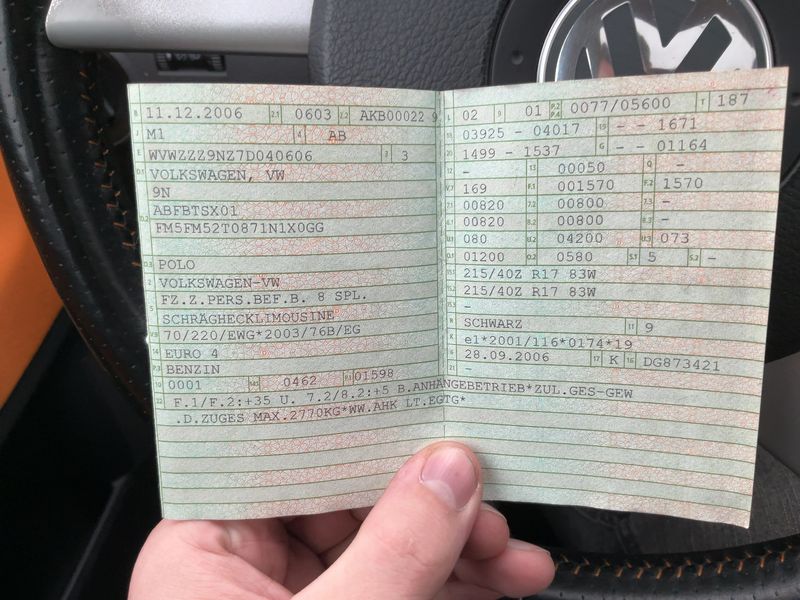 B 11.12.2006 2.1 0603 2.2 AKB00022 9
J M1 4 AB
E WVWZZZ9NZ7D040606 3 3
D.1 VOLKSWAGEN, VW
9N
D.2 ABFBTSX01
FM5FM52T0871N1X0GG
D.3 POLO
2 VOLKSWAGEN-VW
5 FZ.Z.PERS.BEF.B. 8 SPL.
SCHRÄGHECKLIMOUSINE
V.9 70/220/EWG*2003/76B/EG
14 EURO 4
P.3 BENZIN
10 0001 14.1 0462 P.1 01598
L 02 9 01 P.2 P.4 0077/05600 T 187
18 03925 - 04017 19 - - 1671
20 1499 - 1537 G - - 01164
12 - 13 00050 Q -
V.7 169 F.1 001570 F.2 1570
7.1 00820 7.2 00800 7.3 -
8.1 00820 8.2 00800 8.3 -
U.1 080 U.2 04200 U.3 073
O.1 01200 O.2 0580 S.1 5 S.2 -
15.1 215/40Z R17 83W
15.2 215/40Z R17 83W
15.3 -
R SCHWARZ 11 9
K e1*2001/116*0174*19
6 28.09.2006 17 K 16 DG873421
21 -
22 F.1/F.2:+35 U. 7.2/8.2:+5 B.ANHÄNGEBETRIEB*ZUL.GES-GEW
.D.ZUGES MAX.2770KG*WW.AHK LT.EGTG*